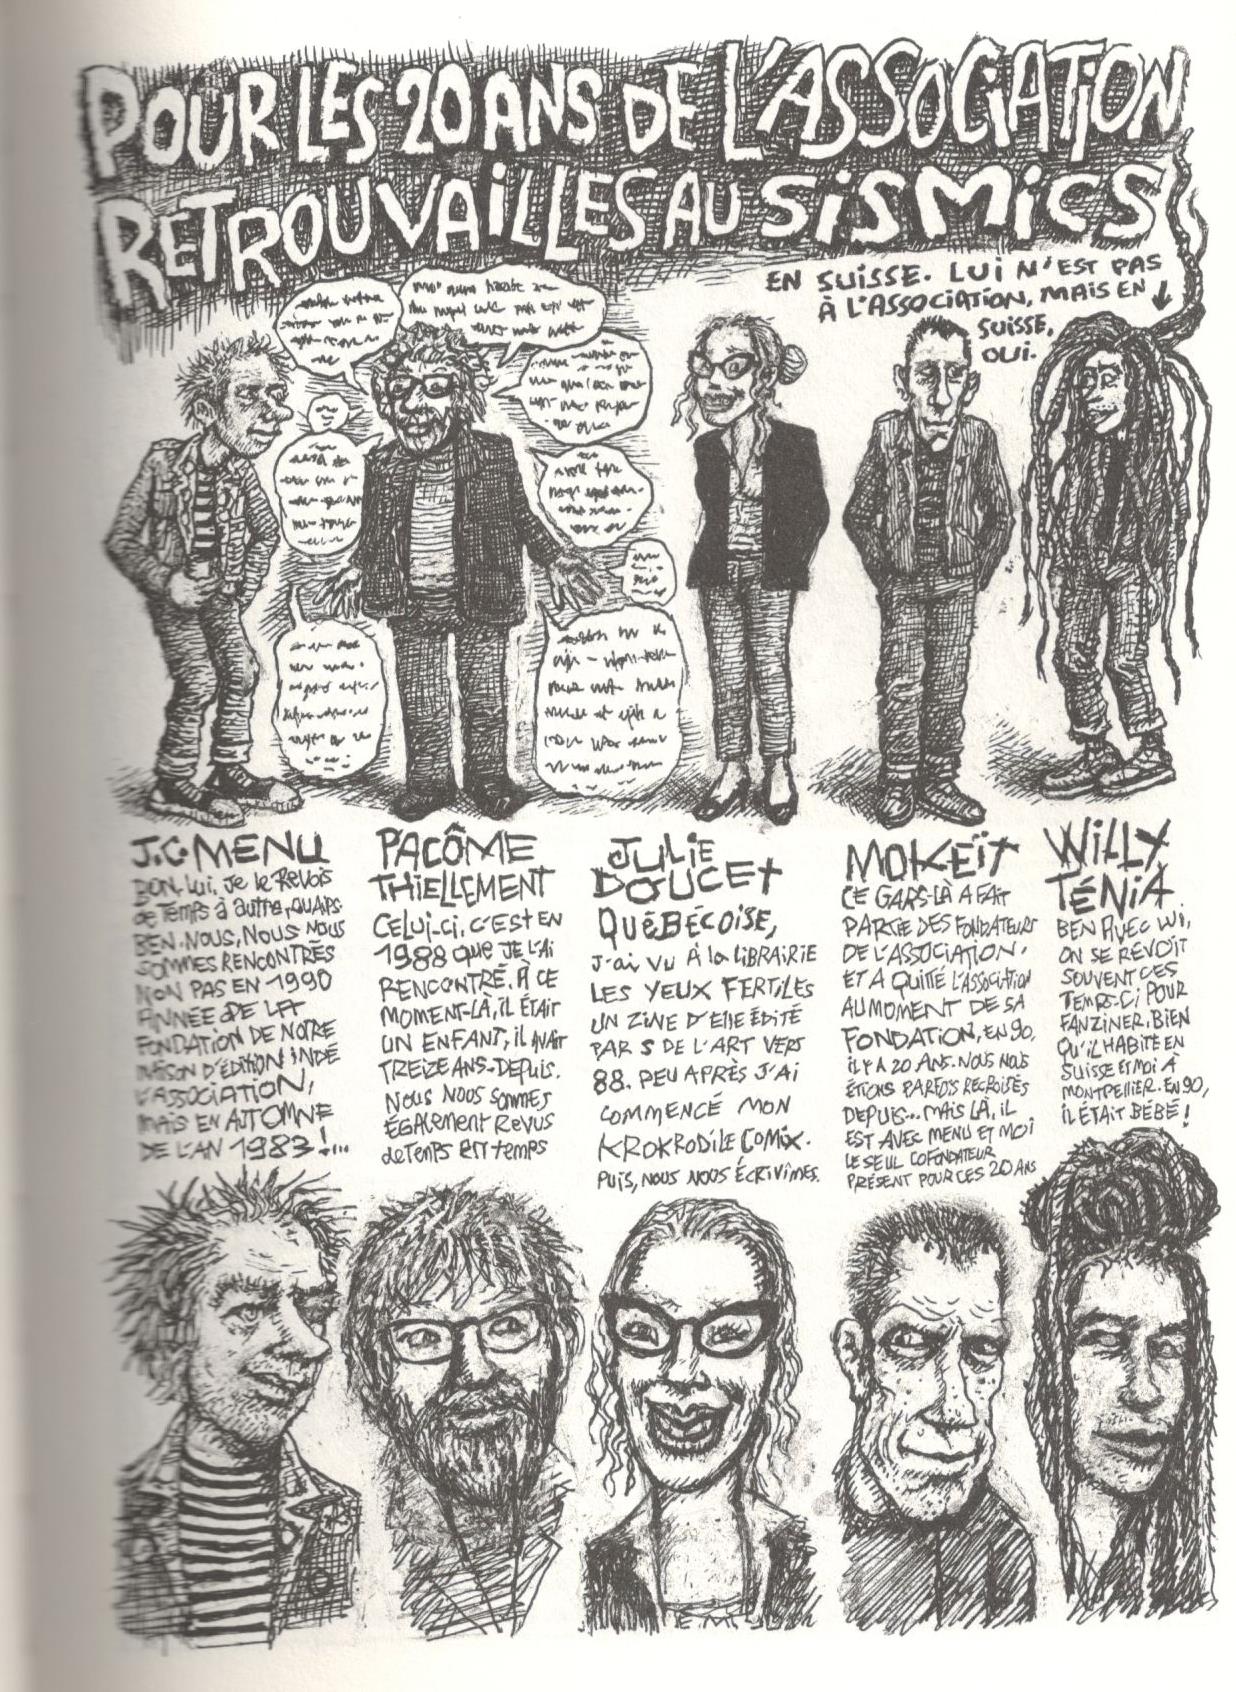 POUR LES 20 ANS DE L'ASSOCIATION
RETROUVAILLES AU SISMICS
EN SUISSE. LUI N'EST PAS
À L'ASSOCIATION, MAIS EN
SUISSE,
OUI.
J.C. MENU
BON, lui, Je le Revois
de Temps à autre, quais.
BEN, NOUS, NOUS NOUS
SOMMES RENCONTRÉS
NON PAS EN 1990
ANNÉE DE LA
FONDATION DE NOTRE
MAISON D'ÉDITION INDÉ
L'ASSOCIATION,
MAIS EN AUTOMNE
DE L'AN 1983!...
PACÔME
THIELLEMENT
CELUI-CI, C'EST EN
1988 QUE JE L'AI
RENCONTRÉ. À CE
MOMENT-LÀ, IL ÉTAIT
UN ENFANT, IL AVAIT
TREIZE ANS. DEPUIS,
NOUS NOUS SOMMES
ÉGALEMENT REVUS
de Temps en temps
JULIE
DOUCET
QUÉBÉCOISE,
J'AI VU À la LIBRAIRIE
LES YEUX FERTILES
UN ZINE D'ELLE ÉDITÉ
PAR S DE L'ART VERS
88. PEU APRÈS J'AI
COMMENCÉ MON
KROKRODILE COMIX.
PUIS, NOUS NOUS ÉCRIVÎMES.
MOKEÏT
CE GARS-LÀ A FAIT
PARTIE DES FONDATEURS
DE L'ASSOCIATION.
ET A QUITTÉ L'ASSOCIATION
AU MOMENT DE SA
FONDATION, EN 90,
IL Y A 20 ANS. NOUS NOUS
ÉTIONS PARFOIS RECROISÉS
DEPUIS... MAIS LÀ, IL
EST AVEC MENU ET MOI
LE SEUL COFONDATEUR
PRÉSENT POUR CES 20 ANS
WILLY
TÉNIA
BEN AVEC WI,
ON SE REVOIT
SOUVENT CES
TEMPS-CI POUR
FANZINER, BIEN
QU'IL HABITE EN
SUISSE ET MOI À
MONTPELLIER. EN 90,
IL ÉTAIT BÉBÉ!